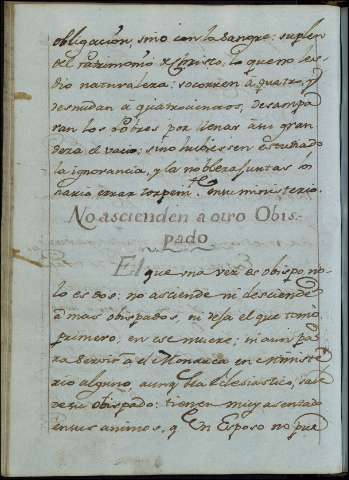 obligacion, sino con la sangre: suplen
del patrimonio de Christo, lo que no les
dio naturaleza; socorren à quatro, y
desnudan à quatrocientos, desampa
ran los Pobres por llenar à su gran
deza el vacio; sino hubiesen estudiado
la ignorancia, y la nobleza juntas
haria errar torpemte. en su ministerio.
No ascienden a otro Obis-
pado
El que una vez es obispo no
lo es dos: no asciende ni desciende
à mas obispados, ni deja el que tomó
primero: en ese muere; ni aun pa
ra servir a el Monarca en Minist
rio alguno, aunq. sea Eclesiastico, sale
de su obispado: tienen muy asentado
en sus animos, q. Un Esposo no pue